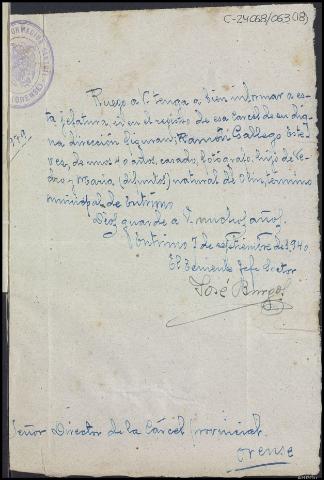 C-24068/063(18)
Ruego a V. tenga a bien informar a es-
ta jefatura, si en el registro de esa Carcel de su dig-
na dirección figuran; Ramón Gallego Este-
vez, de unos 40 años, casado, fotógrafo, hijo de Pe-
dro y Maria (difuntos) natural de Olin, término
municipal de Entrimo
Dios guarde a V. muchos años.
Entrimo 7 de septiembre de 1940
El Teniente Jefe Sector
José Burgos
Señor Director de la Cárcel Provincial.
Orense